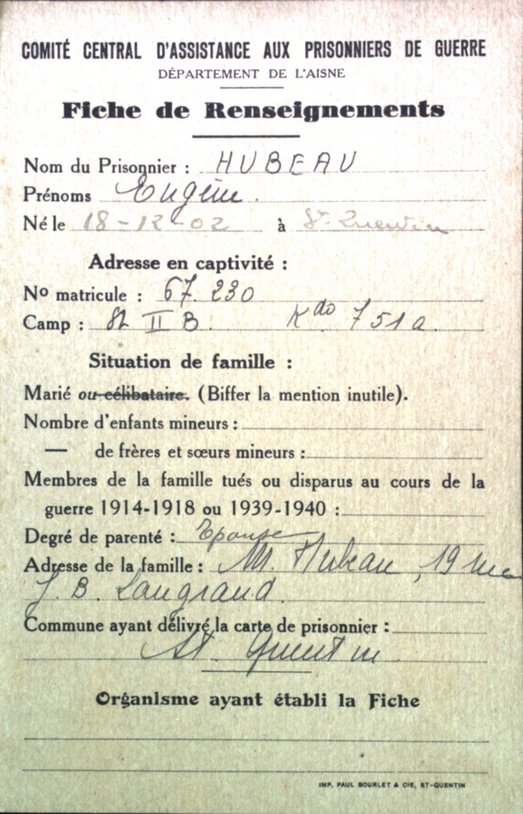 COMITÉ CENTRAL D'ASSISTANCE AUX PRISONNIERS DE GUERRE
DÉPARTEMENT DE L'AISNE
Fiche de Renseignements
Nom du Prisonnier : HUBEAU
Prénoms Eugène.
Né le 18-12-02 à St. Quentin
Adresse en captivité :
No matricule : 67.230
Camp : St II B. Kdo 751a.
Situation de famille :
Marié ou célibataire. (Biffer la mention inutile).
Nombre d'enfants mineurs :
— de frères et sœurs mineurs :
Membres de la famille tués ou disparus au cours de la
guerre 1914-1918 ou 1939-1940 :
Degré de parenté : Epouse
Adresse de la famille : M. Hubeau, 19 rue
J. B. Langrand.
Commune ayant délivré la carte de prisonnier :
St Quentin
Organisme ayant établi la Fiche
IMP. PAUL BOURLET & CIE, ST-QUENTIN